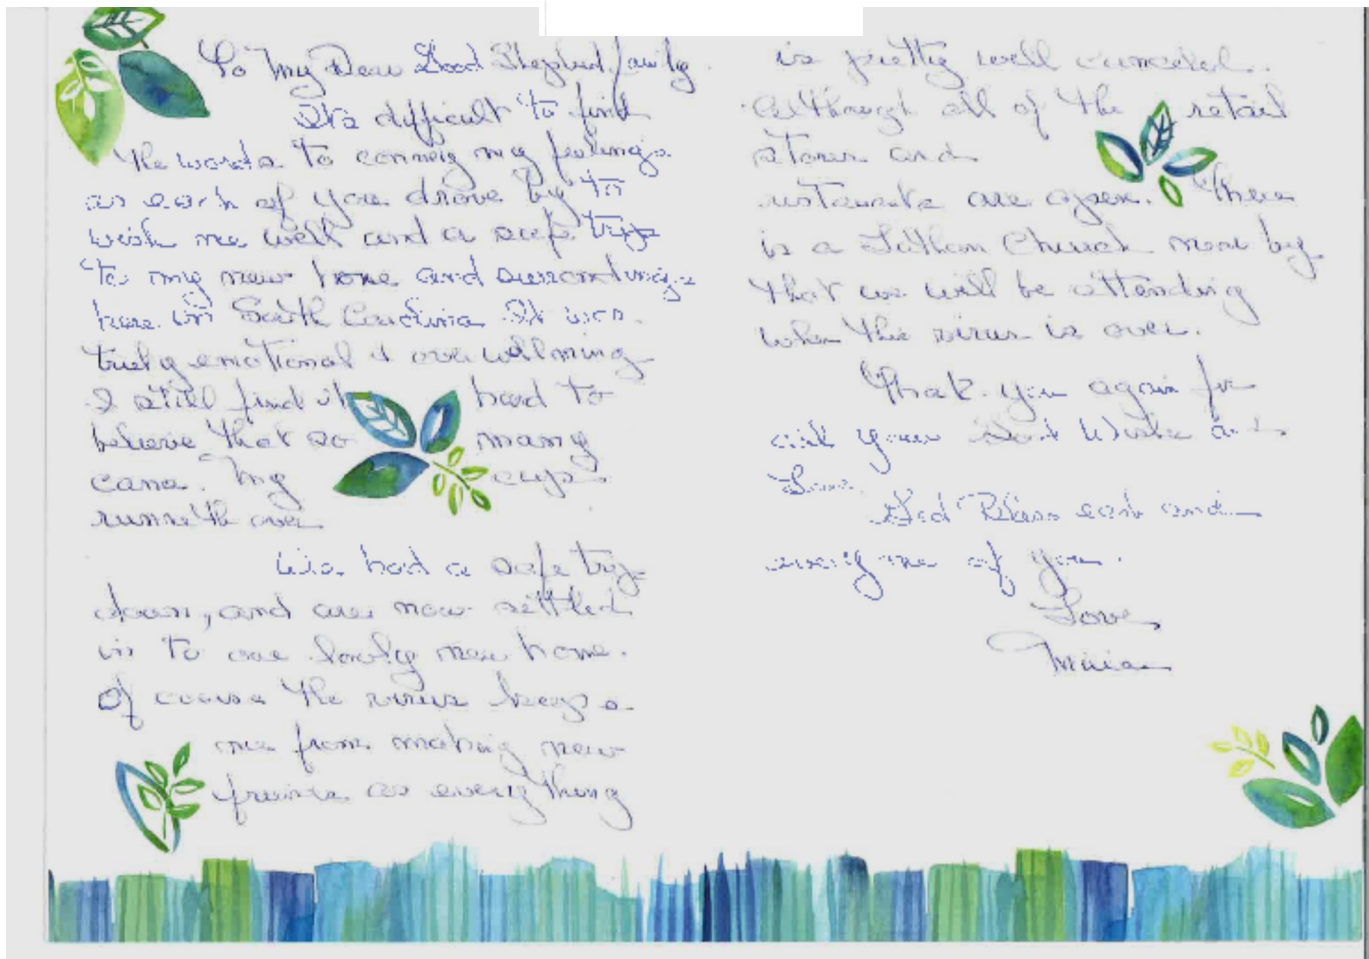 To My Dear Good Shepherd family.
It's difficult to find
the words to convey my feelings
as each of you drove by to
wish me well and a safe trip
to my new home and surroundings
here in South Carolina. It was
truly emotional & overwhelming
I still find it hard to
believe that so many
came. My cup
runneth over
We had a safe trip
down, and are now settled
in to our lovely new home.
Of course the virus keeps
me from making new
friends as everything
is pretty well canceled.
Although all of the retail
stores and
restaurants are open. There
is a Lutheran Church near by
that we will be attending
when the virus is over.
Thank you again for
all your Good Wishes and
Love.
God Bless each and
every one of you.
Love
Miriam